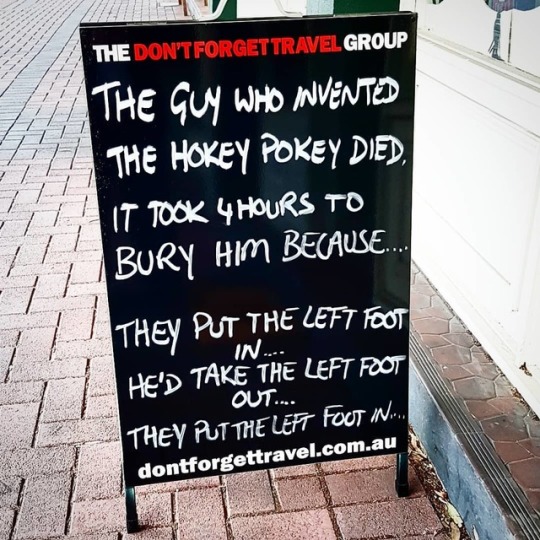 THE DON'T FORGET TRAVEL GROUP
THE GUY WHO INVENTED
THE HOKEY POKEY DIED.
IT TOOK 4 HOURS TO
BURY HIM BECAUSE....
THEY PUT THE LEFT FOOT
IN....
HE'D TAKE THE LEFT FOOT
OUT....
THEY PUT THE LEFT FOOT IN....
dontforgettravel.com.au